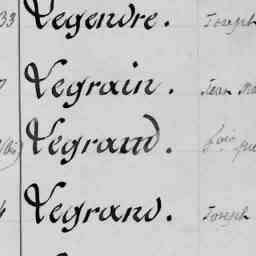 33 Legendre. Joseph
Legrain. Jean
Legrand.
Legrand. Joseph